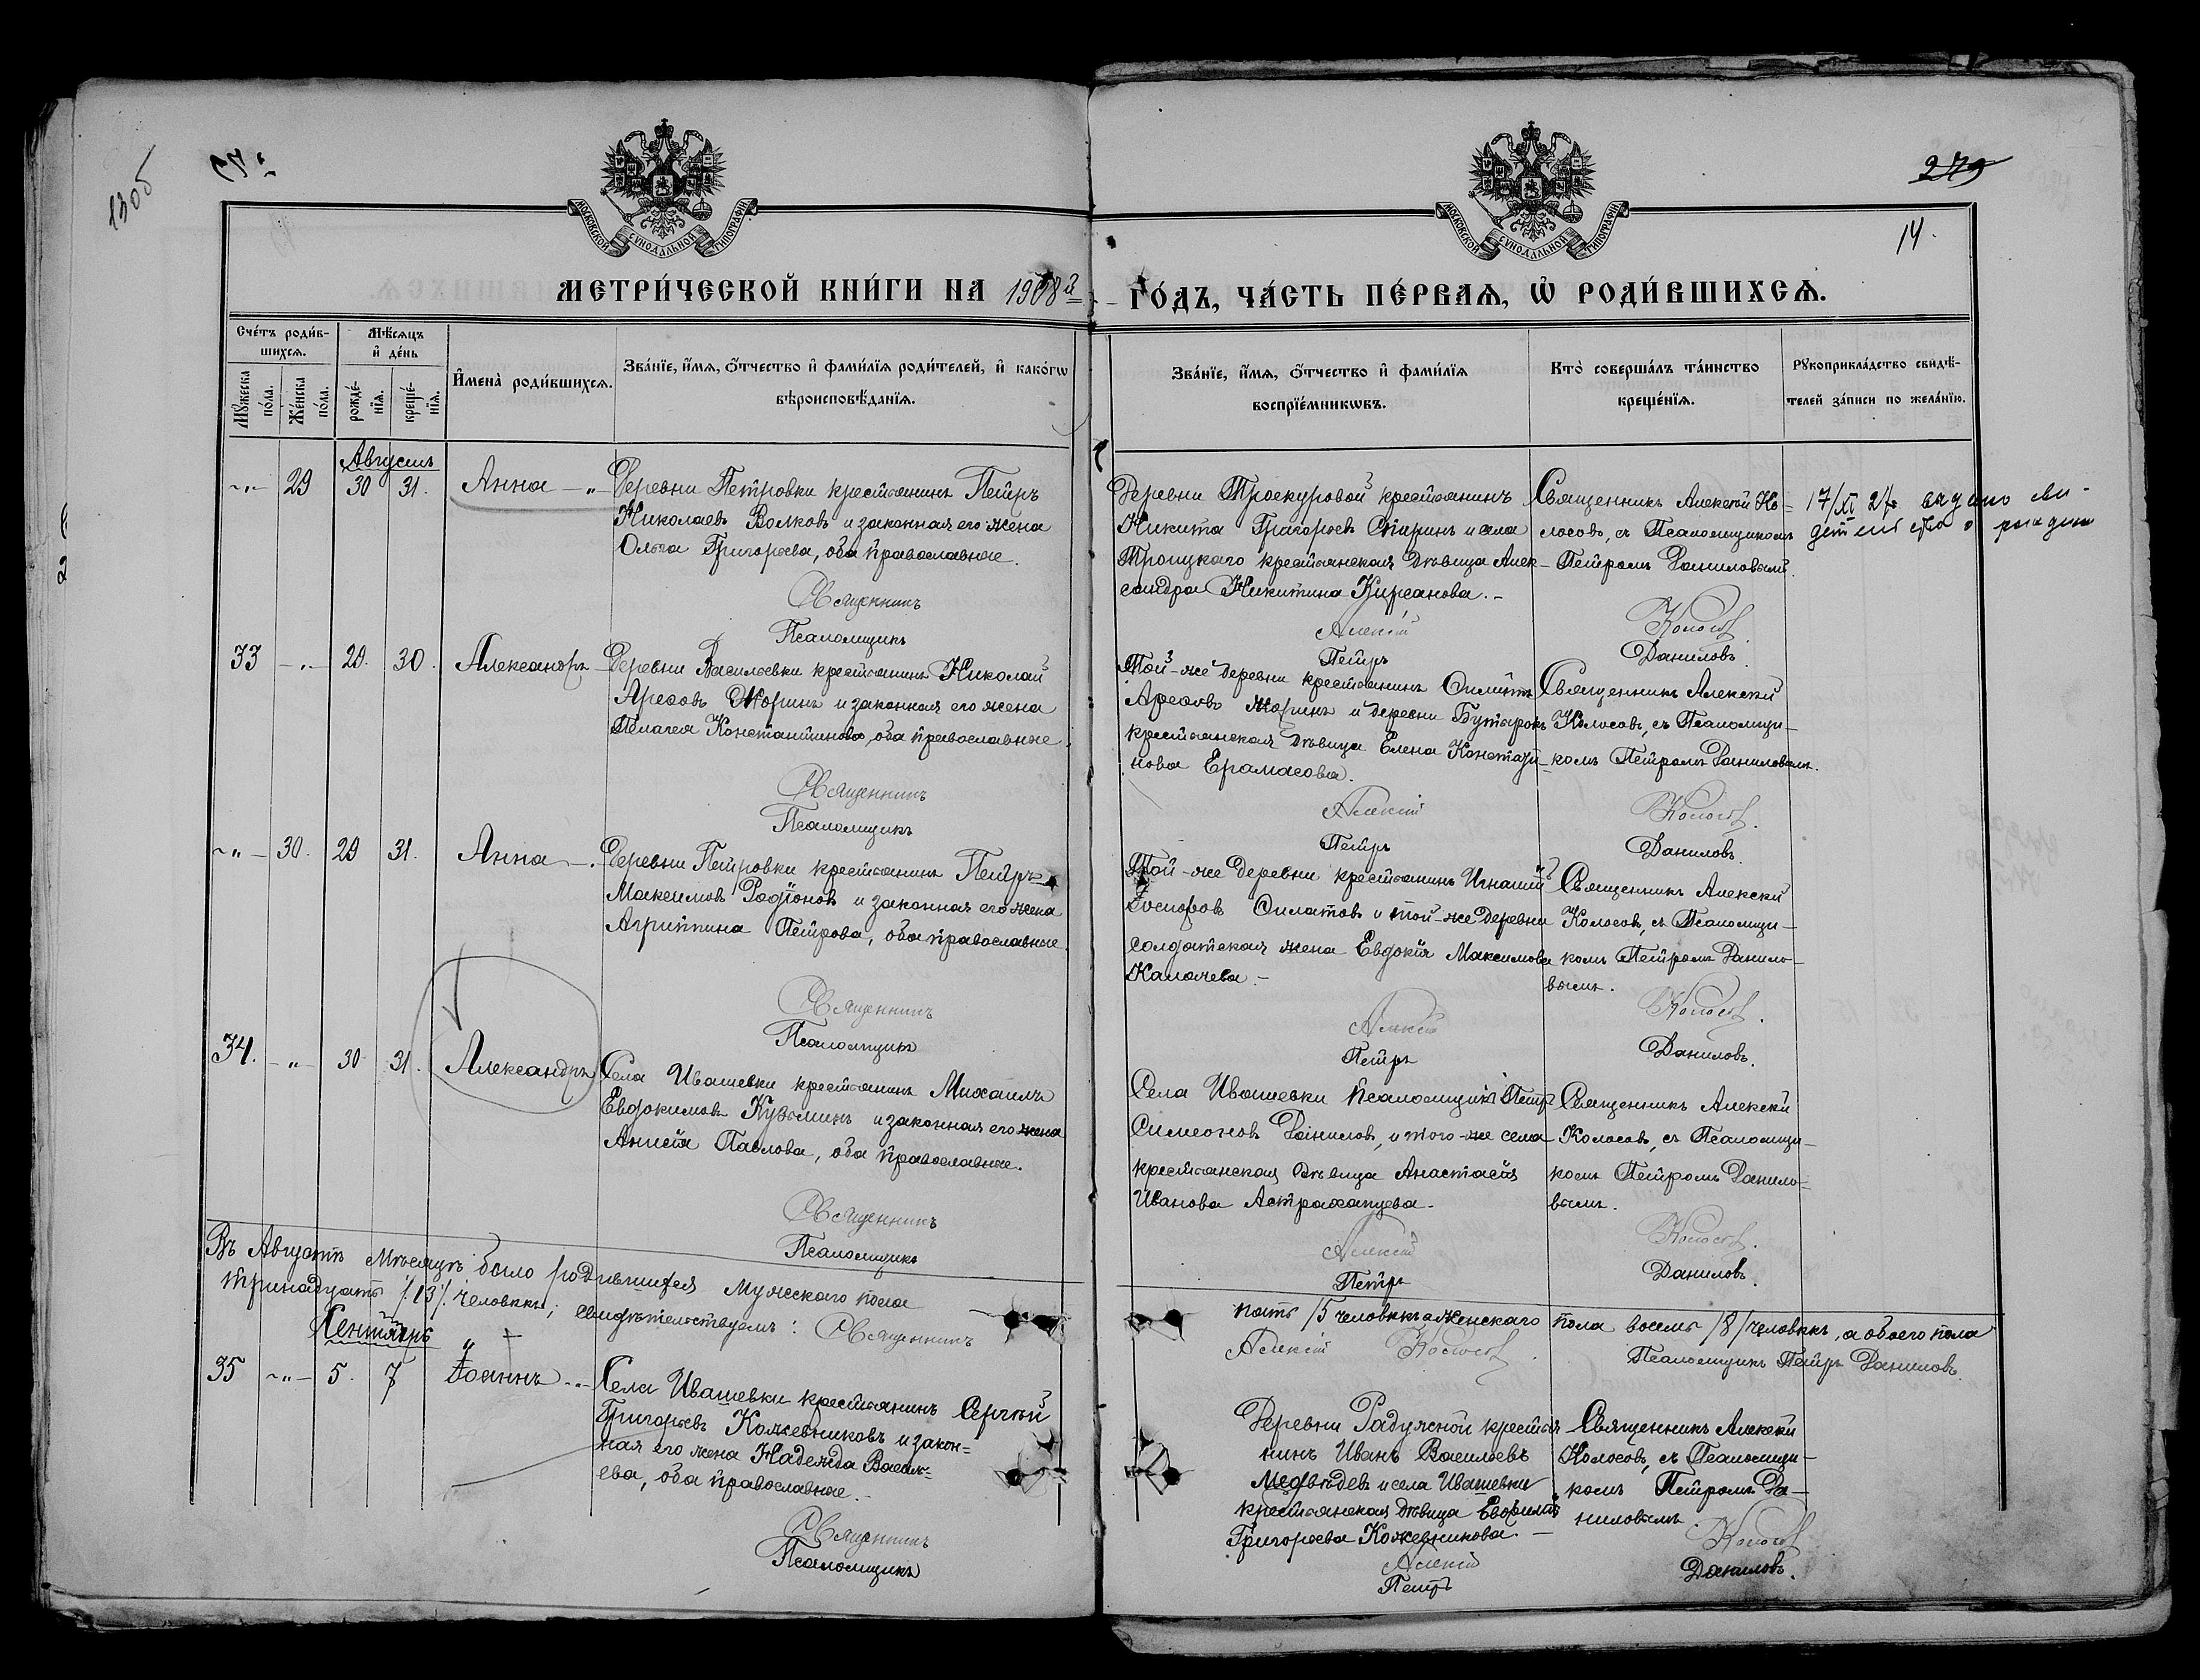 130б
279
14.
МОСКОВСКОЙ СѴНОДАЛЬНОЙ ТИПОГРАФІИ
МОСКОВСКОЙ СѴНОДАЛЬНОЙ ТИПОГРАФІИ
МЕТРИ́ЧЕСКОЙ КНИ́ГИ НА 1908й ГО́ДЪ, ЧА́СТЬ ПЕ́РВАЯ, Ѡ РОДИ́ВШИХСЯ.
Сче́тъ роди́в-
шихся.
Мꙋжеска по́ла.
Же́нска по́ла.
Мѣ́сяцъ
и де́нь
рожде́-
нїя.
креще́-
нїя.
Имена̀ роди́вшихся.
Зва́нїе, и́мя, о́тчество и фами́лїя роди́телей, и како́гѡ
вѣроисповѣ́данїя.
Зва́нїе, и́мя, о́тчество и фами́лїя
воспрїе́мникѡвъ.
Кто̀ соверша́лъ та́инство
креще́нїя.
Рꙋкоприкла́дство свидѣ́-
телей за́писи по жела́нїю.
Августъ
-„- 29 30 31. Анна -„-
Деревни Петровки крестьянинъ Петръ
Николаевъ Волковъ и законная его жена
Ольга Григорьева, оба православные.
Священникъ
Псаломщикъ
Деревни Проскуровой крестьянинъ
Никита Григорьев Спиринъ и села
Троицкаго крестьянская дѣвица Алек-
сандра Никитина Кирсанова. -
Алексій
Петръ
Священникъ Алексѣй Ко-
лосовъ, съ Псаломщикомъ
Петромъ Даниловымъ.
Колосовъ
Даниловъ.
17/XI 27 выдано сви-
детельство о рождении
33 -„- 29. 30. Александръ
Деревни Васильевки крестьянинъ Николай
Арефовъ Жоринъ и законная его жена
Пелагея Константинова, оба православные.
Священникъ
Псаломщикъ
Той-же деревни крестьянинъ
Арефовъ Жоринъ и деревни Бутырокъ
крестьянская дѣвица Елена Констати-
нова Ерамасова.
Алексій
Петръ
Священникъ Алексѣй
Колосовъ, съ Псаломщи-
комъ Петромъ Даниловымъ.
Колосовъ.
Даниловъ.
-„- 30. 29 31. Анна -.
Деревни Петровки крестьянинъ Петръ
Максимовъ Родіоновъ и законная его жена
Агриппина Петрова, оба православные.
Священникъ
Псаломщикъ
Той-же деревни крестьянинъ Игнатій
Іосифовъ Филатовъ и той-же деревни
солдатская жена Евдокія Максимова
Калачева. -
Алексій
Петръ
Священникъ Алексѣй
Колосовъ, съ Псаломщи-
комъ Петромъ Данило-
вымъ.
Колосовъ.
Даниловъ.
34. -„- 30 31. Александръ
Села Ивашевки крестьянинъ Михаилъ
Евдокимовъ Кузьминъ и законная его жена
Анисія Павлова, оба православные.
Священникъ
Псаломщикъ
Села Ивашевки Псаломщикъ Петръ
Симеоновъ Даниловъ, и того-же села
крестьянская дѣвица Анастасія
Иванова Астраханцева. -
Алексій
Петръ
Священникъ Алексѣй
Колосовъ, съ Псаломщи-
комъ Петромъ Данило-
вымъ.
Колосовъ.
Даниловъ.
Въ Августѣ Мѣсяцѣ было родившихся мужскаго пола пять /5/ человѣкъ а женскаго пола восемь /8/ человѣкъ, а обоего пола
тринадцать /13/ человѣкъ; свидѣтельствуемъ: Священникъ Алексій Колосовъ. Псаломщикъ Петръ Даниловъ.
Сентябрь
35 -„- 5. 7 Іоаннъ
Села Ивашевки крестьянинъ Сергѣй
Григорьевъ Кожевниковъ и закон-
ная его жена Надежда Василь-
ева, оба православные. -
Священникъ
Псаломщикъ
Деревни Радужной крестья-
нинъ Иванъ Васильевъ
Медвѣдевъ и села Ивашевки
крестьянская дѣвица Евфимія
Григорьева Кожевникова -
Алексій
Петръ
Священникъ Алексѣй
Колосовъ, съ Псаломщи-
комъ Петромъ Да-
ниловымъ.
Колосовъ
Даниловъ.